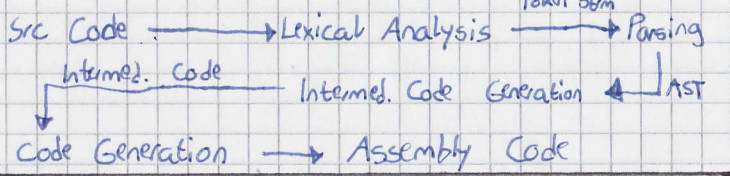 Src Code Lexical Analysis Parsing
Intermed. Code Intermed. Code Generation AST
Code Generation Assembly Code